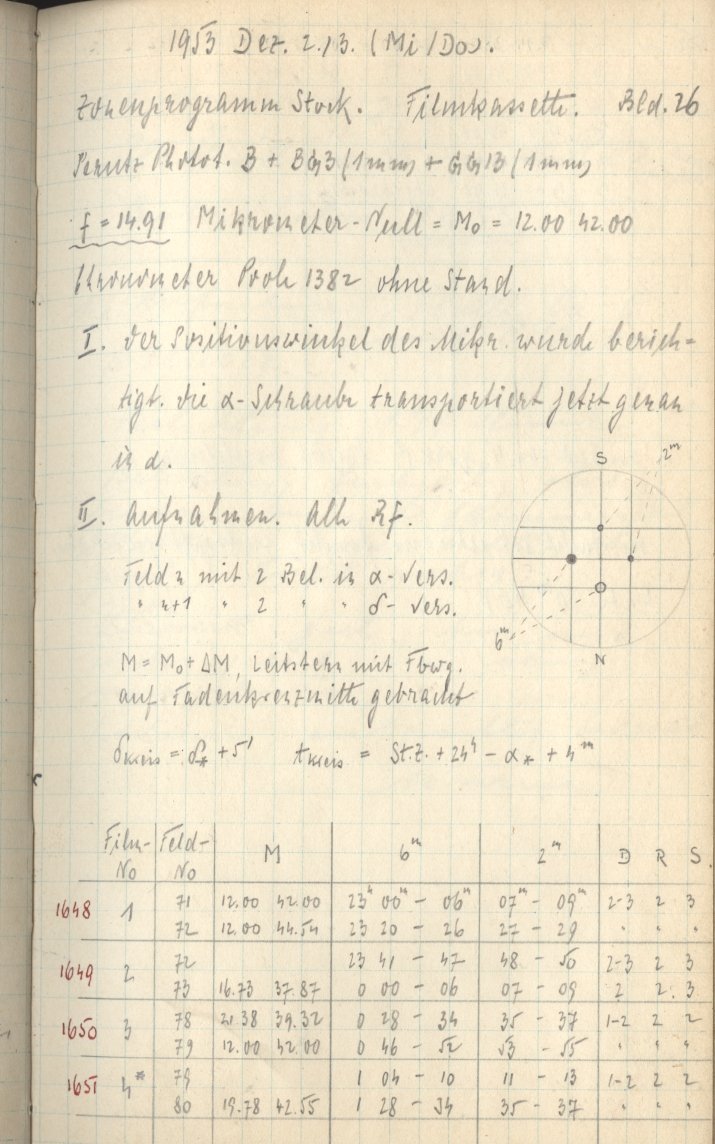 1953 Dez. 2./3. (Mi/Do).
Zonenprogramm Stock. Filmkassette. Bld. 26
Perutz Photot. B + BG3 (1mm) + GG13 (1mm)
f = 14.91 Mikrometer-Null = M₀ = 12.00 42.00
Chronometer Poole 1382 ohne Stand.
I. Der Positionswinkel des Mikr. wurde berich-
tigt. Die α-Schraube transportiert jetzt genau
in α.
S
2ᵐ
II. Aufnahmen. Alle Rf.
Feld n mit 2 Bel. in α-Vers.
" n+1 " 2 " " δ-Vers.
6ᵐ
N
M = M₀ + ΔM, Leitstern mit Fbwg.
auf Fadenkreuzmitte gebracht
δKreis = δ* + 5' tKreis = St.Z. + 24ʰ - α* + 4ᵐ
Film-No Feld-No M 6ᵐ 2ᵐ D R S.
1648 1 71 12.00 42.00 23ʰ 00ᵐ - 06ᵐ 07ᵐ - 09ᵐ 2-3 2 3
72 12.00 44.54 23 20 - 26 27 - 29 " " "
1649 2 72 23 41 - 47 48 - 50 2-3 2 3
73 16.73 37.87 0 00 - 06 07 - 09 2 2. 3
1650 3 78 21.38 39.32 0 28 - 34 35 - 37 1-2 2 2
79 12.00 42.00 0 46 - 52 53 - 55 " " "
1651 4* 79 1 04 - 10 11 - 13 1-2 2 2
80 19.78 42.55 1 28 - 34 35 - 37 " " "